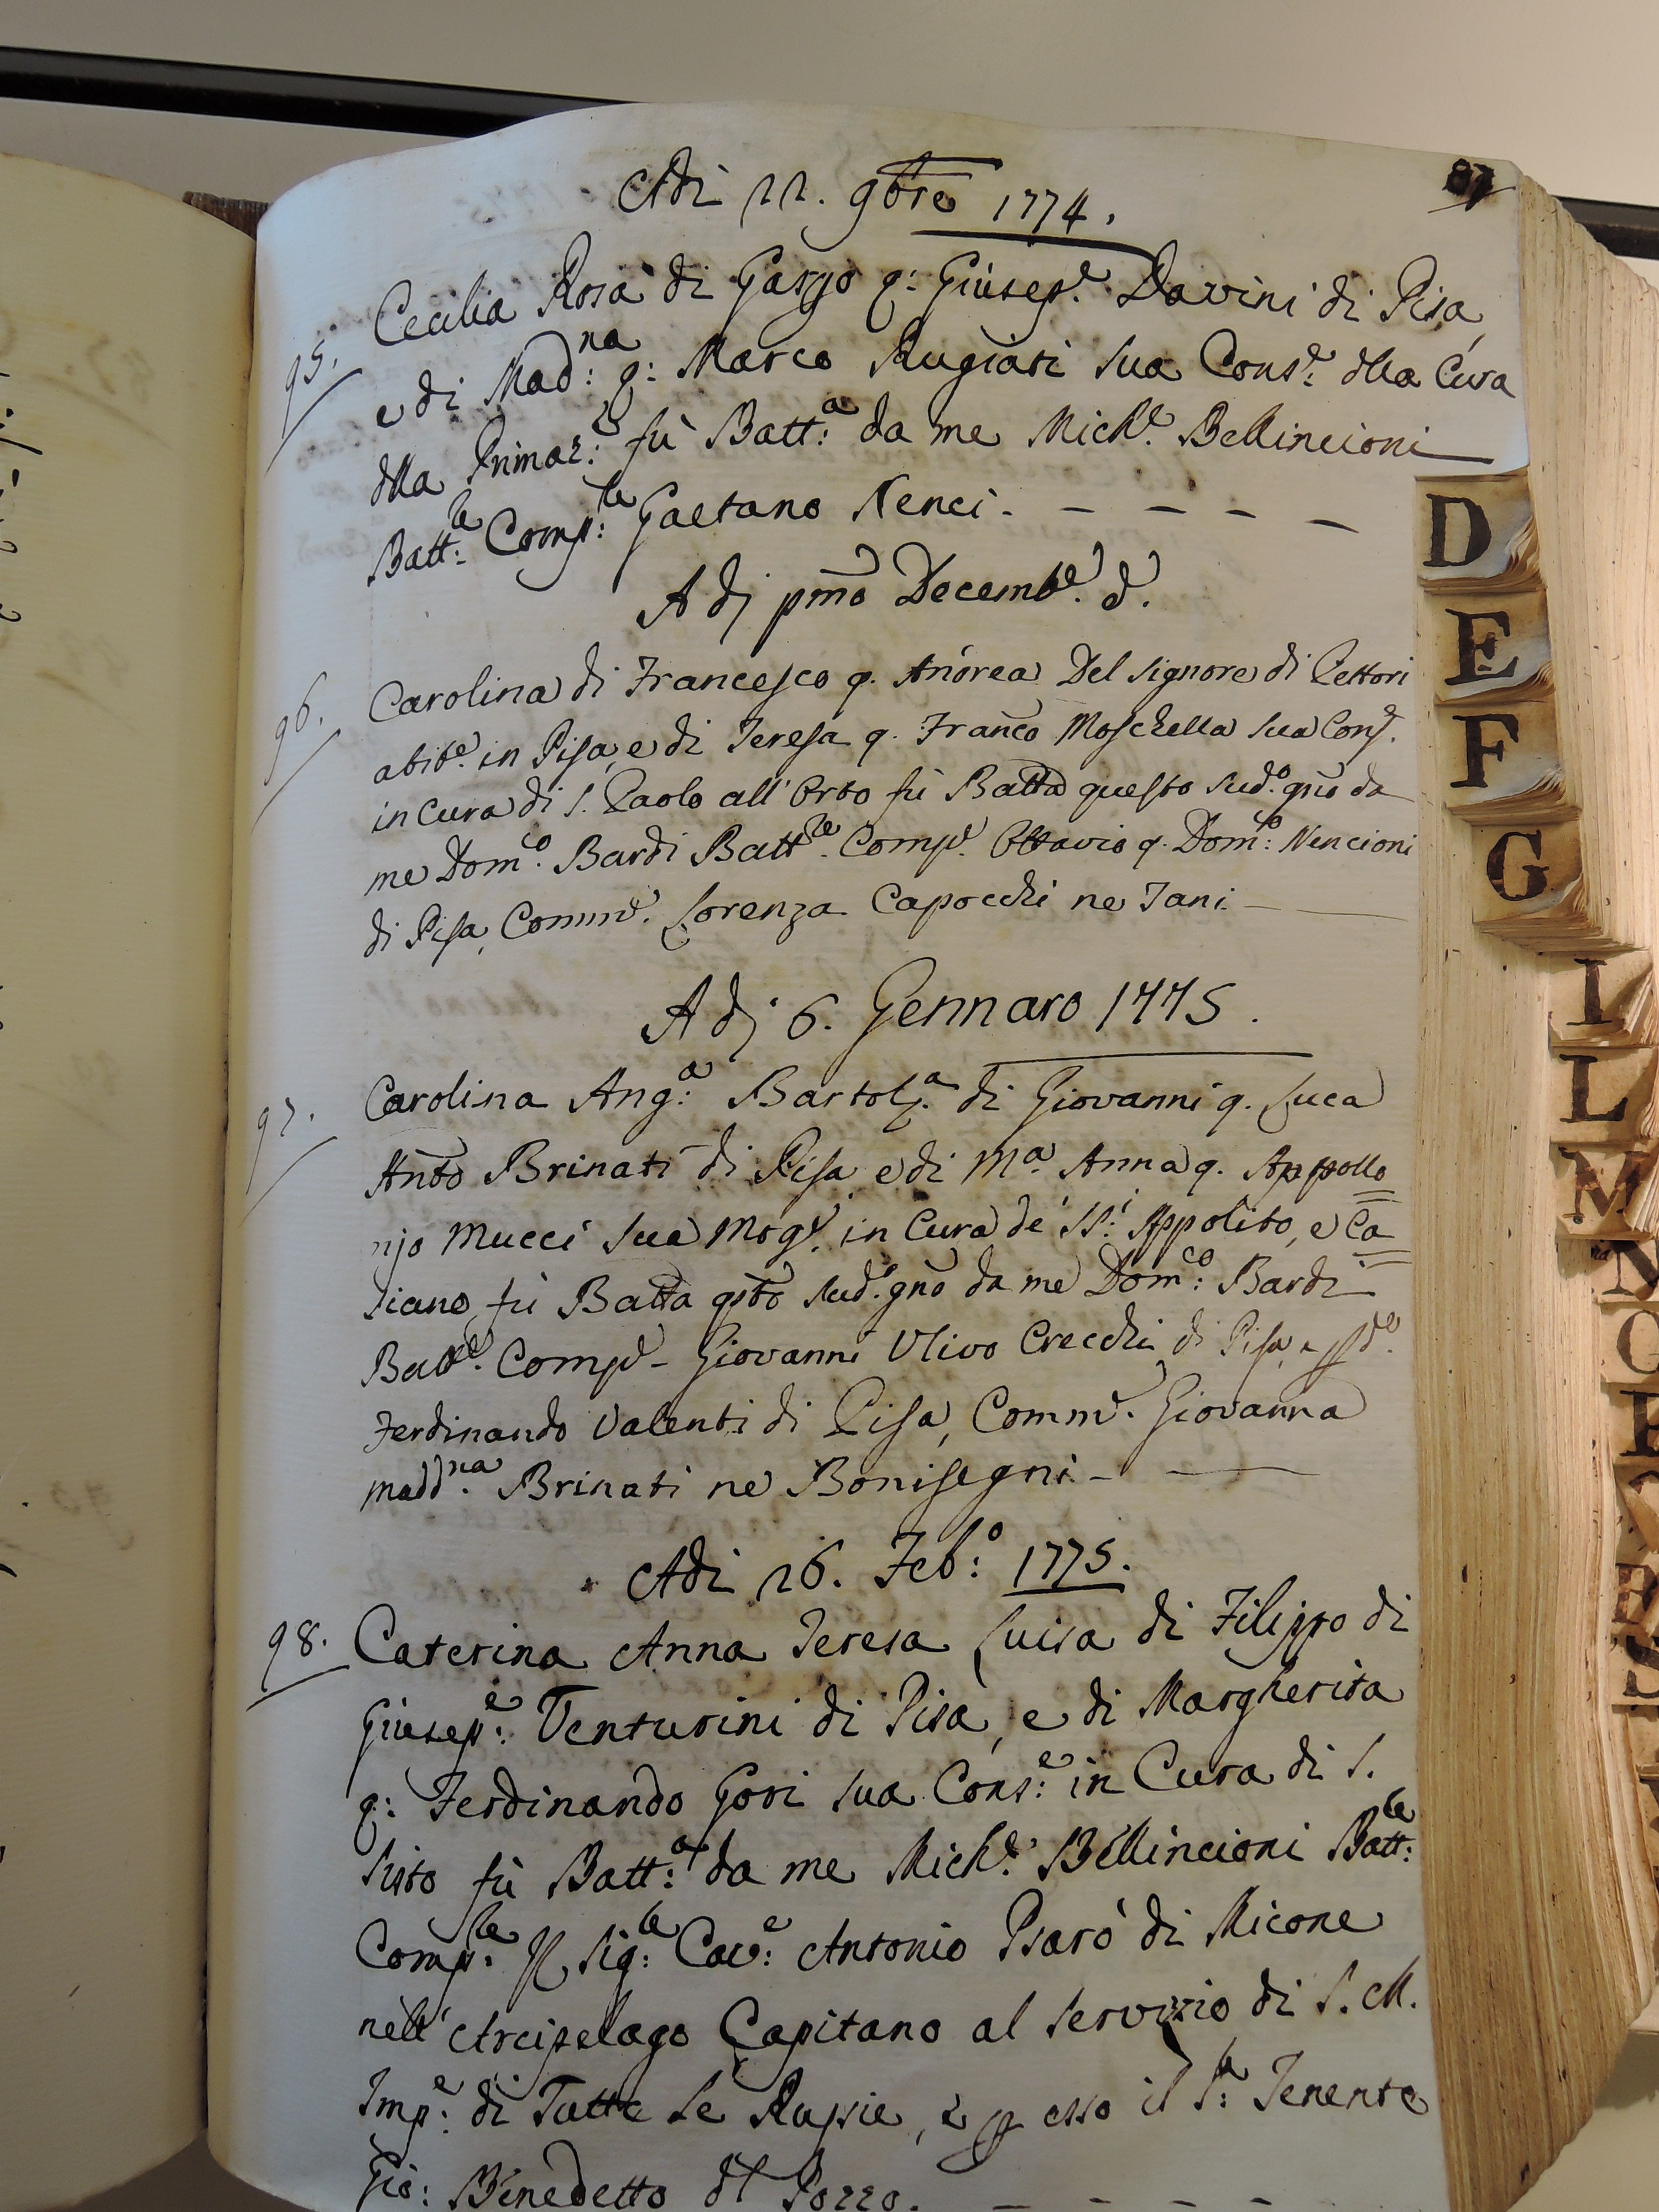 87
Adi 22. 9bre 1774.
95. Cecilia Rosa di Gasp.o q: Giusep.e Davini di Pisa,
e di Mad:na q: Marco Rugiati sua Cons.e dlla Cura
dlla Primaz:e fù Batt:a da me Mich.e Bellincioni
Batt:le Comp:le Gaetano Nenci. - - - - -
A dj pmo Decemb.e d.
96. Carolina di Francesco q. Andrea Del Signore di Pettori
abit.e in Pisa, e di Teresa q. Franco Moschella sua Cons.e
in Cura di S. Paolo all'Orto fù Batta questo sud.o gno da
me Dom.co Bardi Batt.re Comp.e Ottavio q. Dom:co Nencioni
di Pisa, Comm.e Lorenza Capocchi ne Fani
A dj 6. Gennaro 1775.
97. Carolina Ang:a Bartol.a di Giovanni q. Luca
Anto Brinati di Pisa e di M.a Anna q. Appollo
njo Mucci sua Mog.e in Cura de' SS:i Appolito, e Ca
siano fù Batta qsto sud.o gno da me Dom:co Bardi
Batt.e Comp.e - Giovanni Ulivo Crecchi di Pisa, e p d.o
Ferdinando Valenti di Pisa, Comm.e Giovanna
Madd.na Brinati ne Bonisegni -
Adi 26. Feb:o 1775.
98. Caterina Anna Teresa Luisa di Filippo di
Giusep:e Venturini di Pisa, e di Margherita
q: Ferdinando Gori sua Cons:e in Cura di S.
Sisto fù Batt:a da me Mich.e Bellincioni Batt:le
Comp:le Il Sig:le Cav:e Antonio Psarò di Micone
nell'Arcipelago Capitano al servizio di S. M.
Imp:e di Tutte le Russie, e p esso il S:e Tenente
Gio: Benedetto dl Pozzo. - - - -
D
E
F
G
I
L
M
N